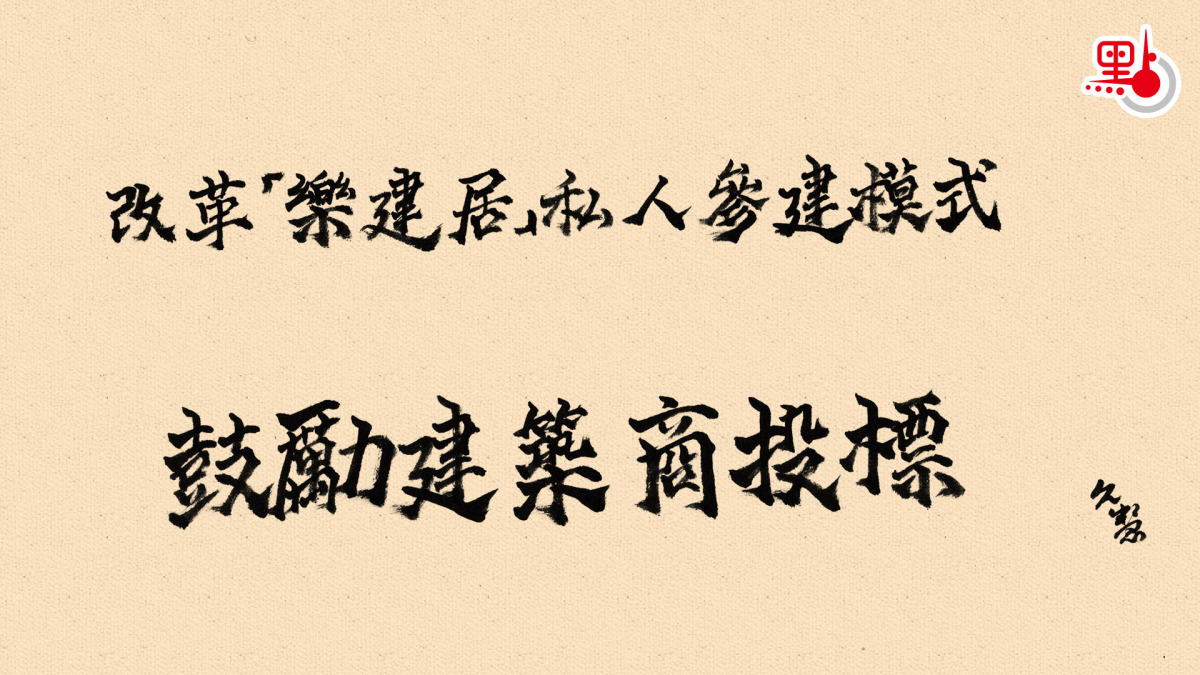 點
改革「樂建居」私人參建模式
鼓勵建築商投標